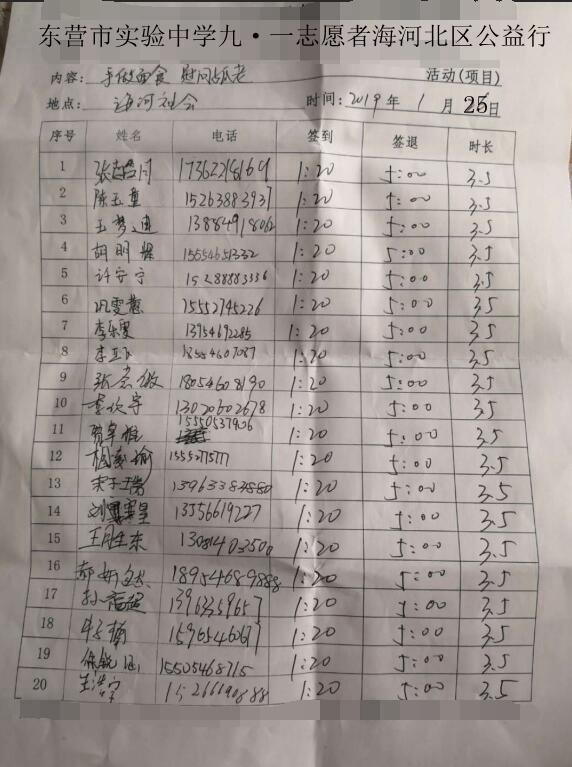 东营市实验中学九·一志愿者海河北区公益行
内容: 手做面食 慰问孤老 活动(项目)
地点: 海河社会 时间: 2019年 1月 25日
序号 姓名 电话 签到 签退 时长
1 17362218169 1:20 5:00 3.5
2 陈玉重 15263883937 1:20 5:00 3.5
3 王梦迪 13884918062 1:20 5:00 3.5
4 胡明 15554651332 1:20 5:00 3.5
5 许安宁 15288883336 1:20 5:00 3.5
6 巩雯慧 15552745226 1:20 5:00 3.5
7 李乐雯 13954692285 1:20 5:00 3.5
8 李 18554607087 1:20 5:00 3.5
9 张 18054608190 1:20 5:00 3.5
10 李欣宇 13020602678 1:20 5:00 3.5
11 15550537906 1:20 5:00 3.5
12 1555277577 1:20 5:00 3.5
13 13963383880 1:20 5:00 3.5
14 刘 13556619227 1:20 5:00 3.5
15 王胜东 13081403500 1:20 5:00 3.5
16 郝 18954689888 1:20 5:00 3.5
17 孙 13963359657 1:20 5:00 3.5
18 1:20 5:00 3.5
19 徐锐 15505468715 1:20 5:00 3.5
20 生浩宇 15266190888 1:20 5:00 3.5